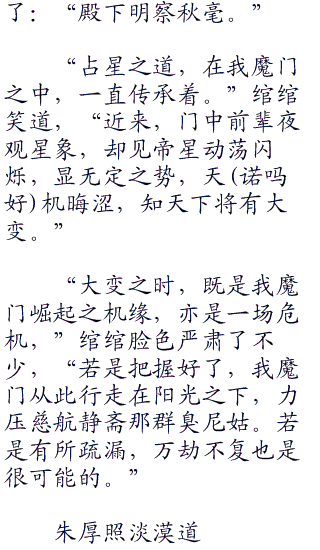 了：“殿下明察秋毫。”
“占星之道，在我魔门
之中，一直传承着。”绾绾
笑道，“近来，门中前辈夜
观星象，却见帝星动荡闪
烁，显无定之势，天(诺吗
好)机晦涩，知天下将有大
变。”
“大变之时，既是我魔
门崛起之机缘，亦是一场危
机，”绾绾脸色严肃了不
少，“若是把握好了，我魔
门从此行走在阳光之下，力
压慈航静斋那群臭尼姑。若
是有所疏漏，万劫不复也是
很可能的。”
朱厚照淡漠道